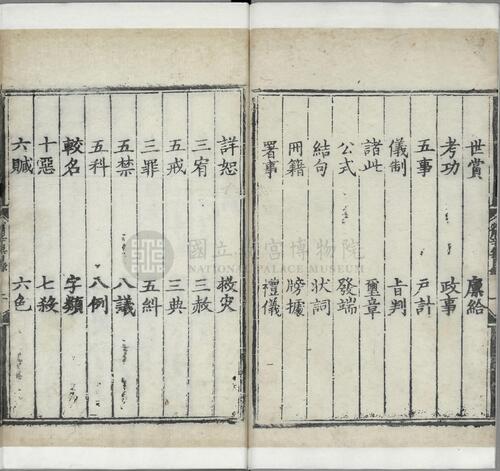 世賞 廩給
考功 政事
五事 戶計
儀制 旨判
諸此 璽章
公式 發端
結句 狀詞
冊籍 牓據
署事 禮儀
詳恕 救灾
三宥 三赦
五戒 三典
三罪 五糾
五禁 八議
五科 八例
較名 字類
十惡 七殺
六贓 六色
國立故宮博物院
NATIONAL PALACE MUSEUM